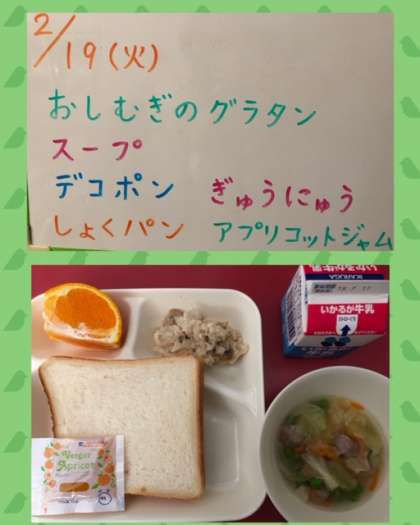 2/19(火)
おしむぎのグラタン
スープ
デコポン ぎゅうにゅう
しょくパン アプリコットジャム
いかるが牛乳
いかるが牛乳
Verger
Apricot